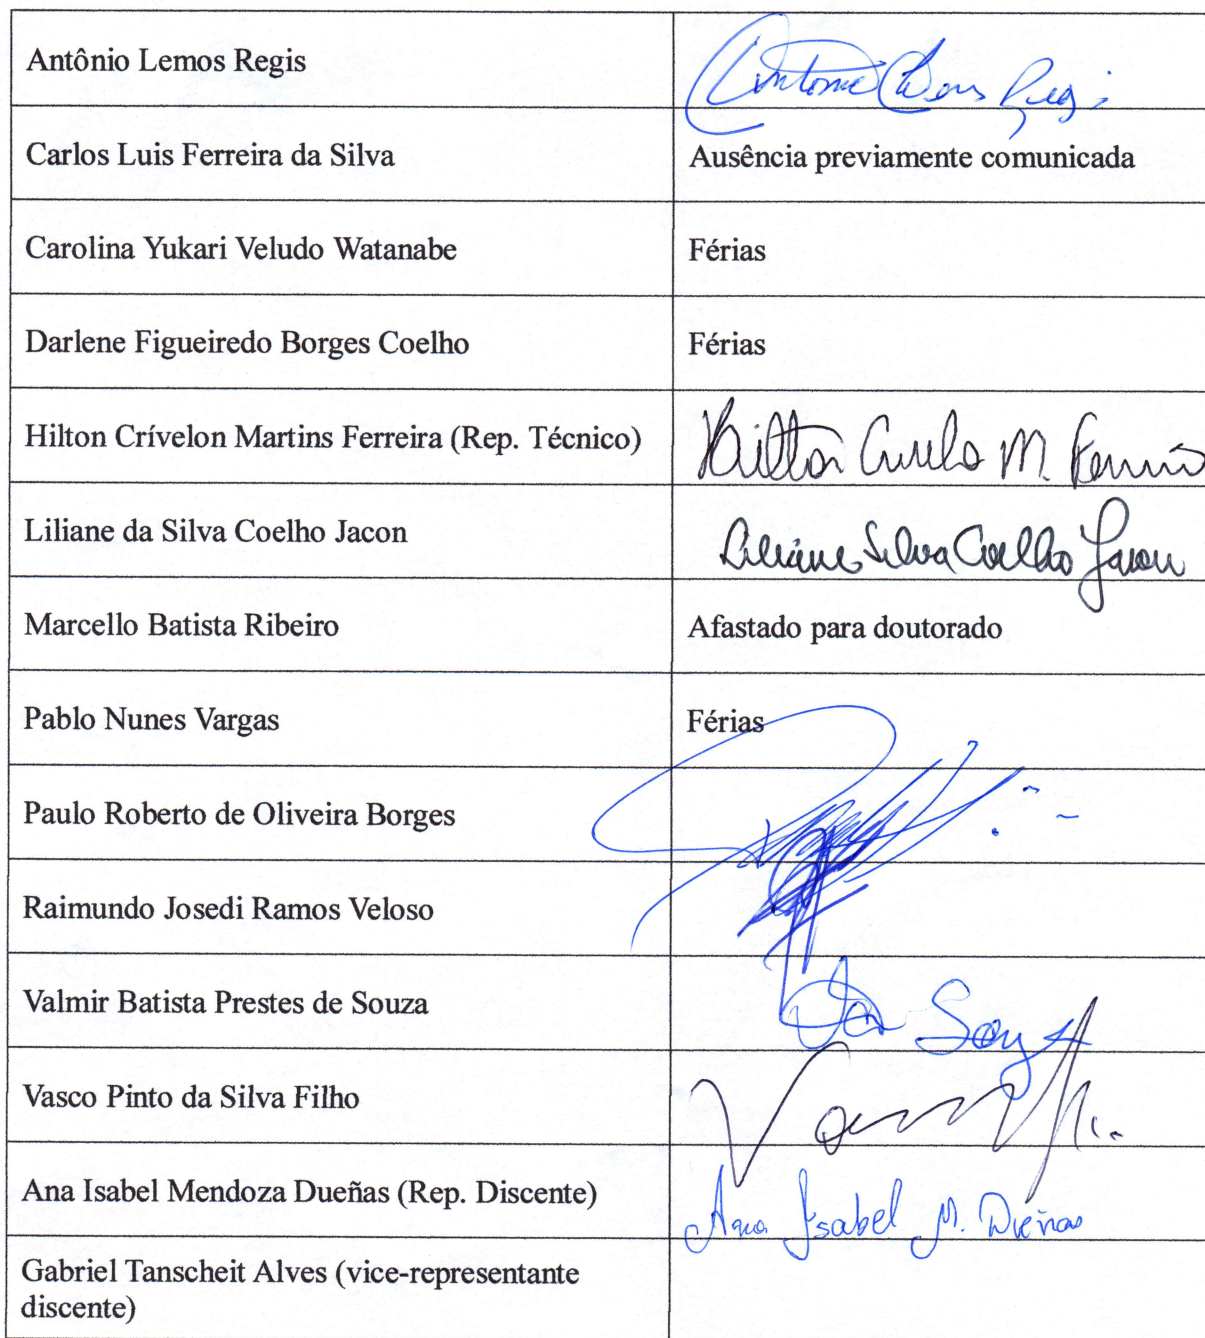 Antônio Lemos Regis
Antonio Lemos Regis
Carlos Luis Ferreira da Silva
Ausência previamente comunicada
Carolina Yukari Veludo Watanabe
Férias
Darlene Figueiredo Borges Coelho
Férias
Hilton Crívelon Martins Ferreira (Rep. Técnico)
Hilton M.
Liliane da Silva Coelho Jacon
Liliane Silva Coelho Jacon
Marcello Batista Ribeiro
Afastado para doutorado
Pablo Nunes Vargas
Férias
Paulo Roberto de Oliveira Borges
Raimundo Josedi Ramos Veloso
Valmir Batista Prestes de Souza
Vasco Pinto da Silva Filho
Ana Isabel Mendoza Dueñas (Rep. Discente)
Ana Isabel M. Dueñas
Gabriel Tanscheit Alves (vice-representante
discente)